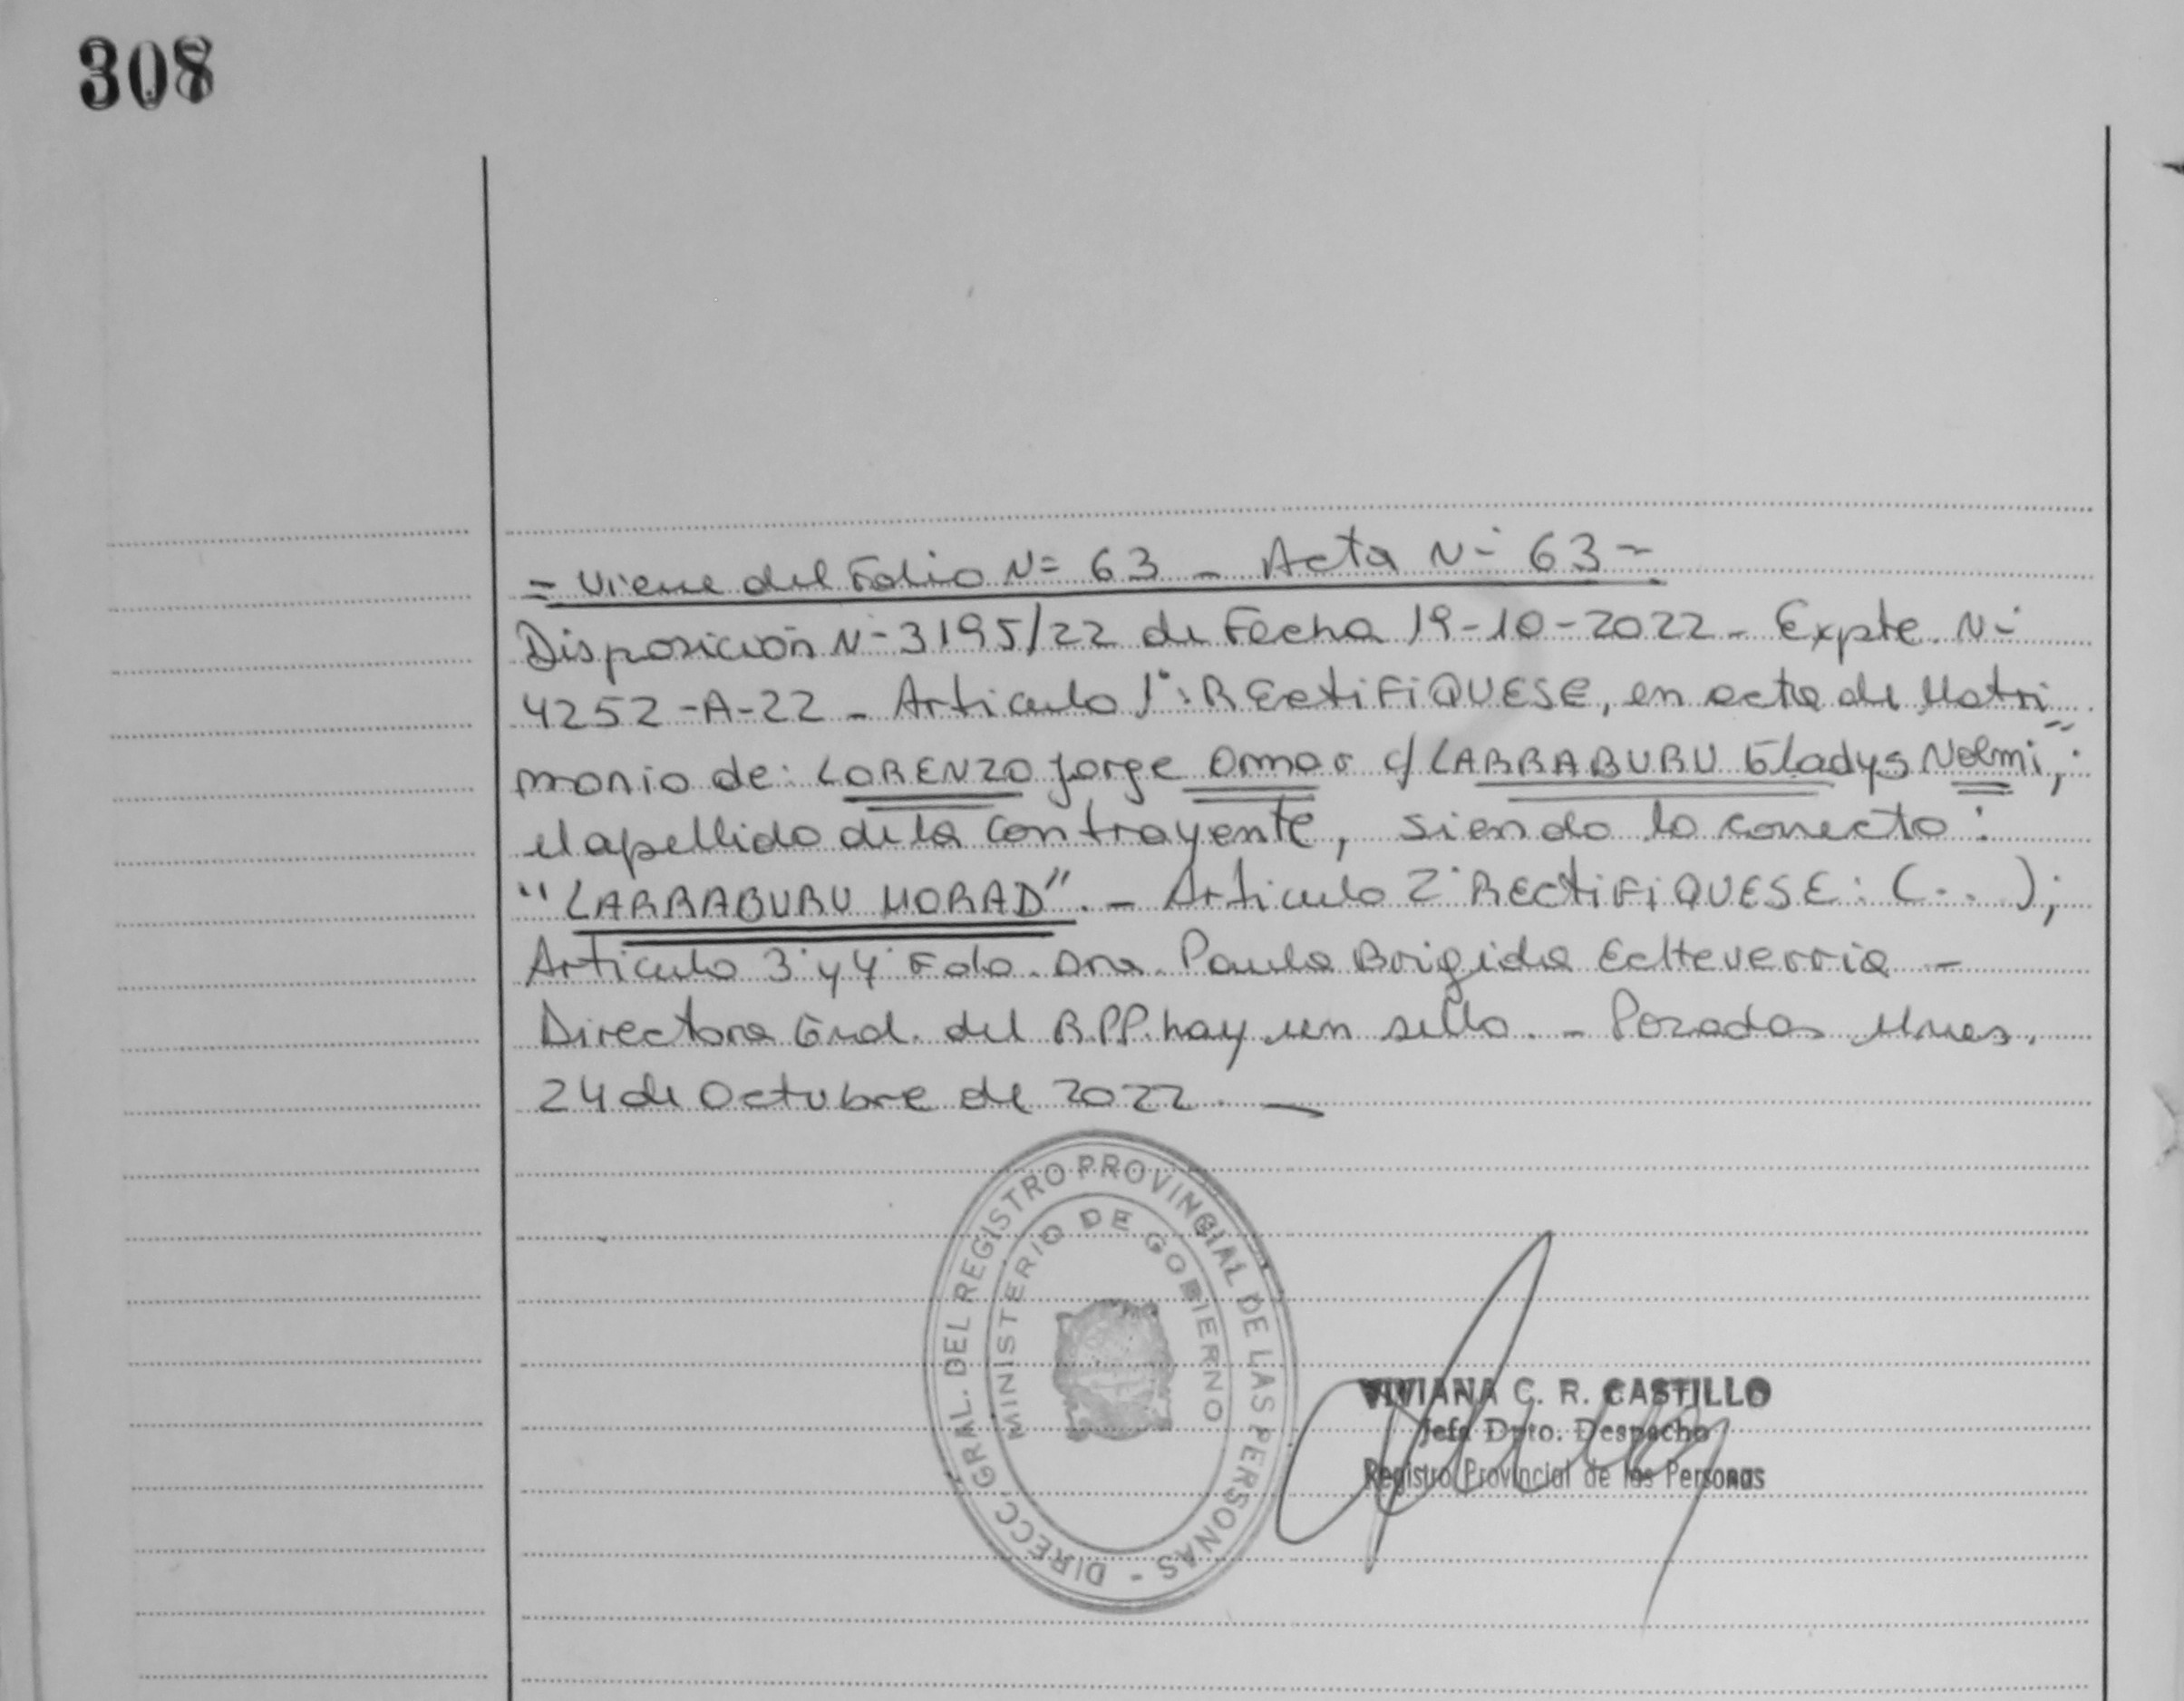 308
= Viene del Folio Nº 63 - Acta Nº 63 =
Disposición Nº 3195/22 de Fecha 19-10-2022 - Expte. Nº
4252-A-22 - Articulo 1º: RECtiFiQUESE, en acta de Matri
monio de: LORENZO Jorge Omar c/ LARRABURU Gladys Nelmi,
el apellido de la contrayente, siendo lo correcto:
"LARRABURU MORAD". - Articulo 2º RECtiFiQUESE: (...);
Articulo 3º y 4º Fdo. Dra. Paula Brigida Echeverria -
Directora Gral. del R.P.P. hay un sello. - Posadas Mnes.
24 de Octubre de 2022. -
DIRECC. GRAL. DEL REGISTRO PROVINCIAL DE LAS PERSONAS -
MINISTERIO DE GOBIERNO
VIVIANA C. R. CASTILLO
Jefa Dpto. Despacho
Registro Provincial de las Personas